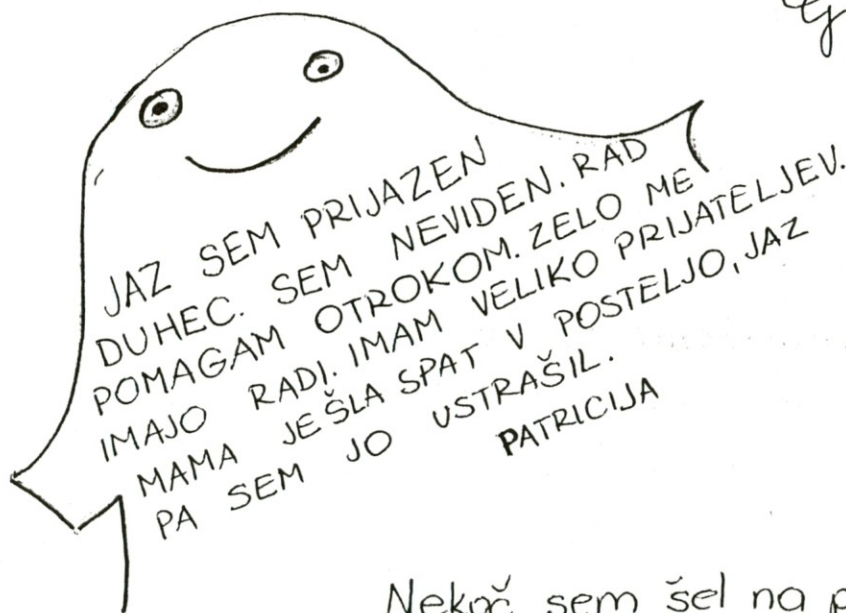 JAZ SEM PRIJAZEN
DUHEC. SEM NEVIDEN. RAD
POMAGAM OTROKOM. ZELO ME
IMAJO RADI. IMAM VELIKO PRIJATELJEV.
MAMA JE ŠLA SPAT V POSTELJO, JAZ
PA SEM JO USTRAŠIL.
PATRICIJA
Nekoč sem šel na